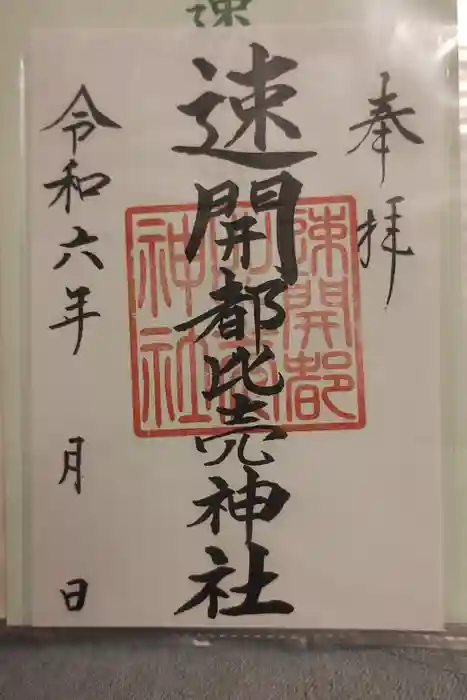 奉拝
速開都比売神社
速開都
神社
令和六年 月 日